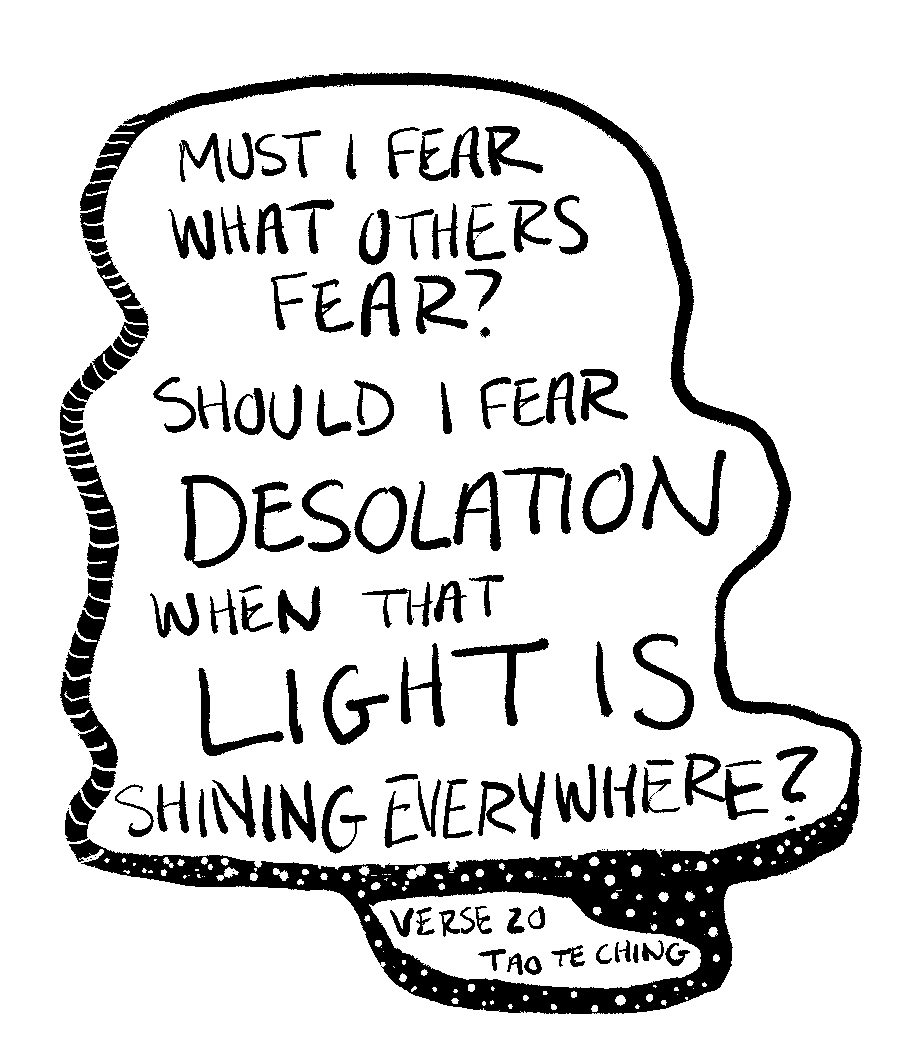 MUST I FEAR
WHAT OTHERS
FEAR?
SHOULD I FEAR
DESOLATION
WHEN THAT
LIGHT IS
SHINING EVERYWHERE?
VERSE 20
TAO TE CHING